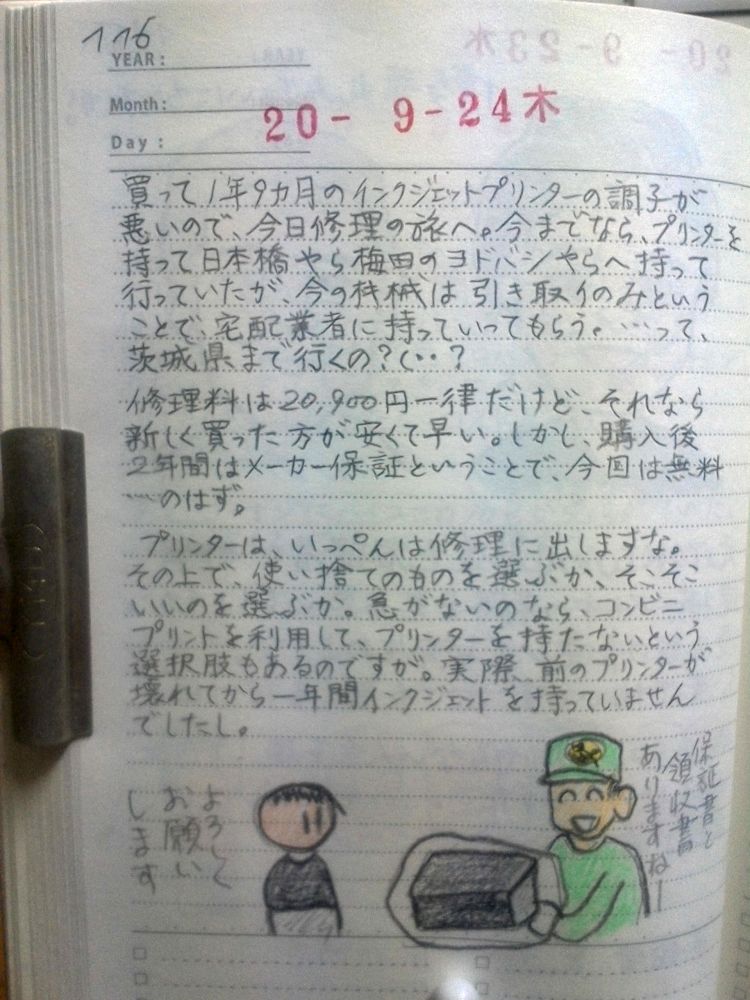 116
YEAR :
Month :
Day :
20- 9-24木
買って1年9カ月のインクジェットプリンターの調子が
悪いので、今日修理の旅へ。今までなら、プリンターを
持って日本橋やら梅田のヨドバシやらへ持って
行っていたが、今の機械は引き取りのみという
ことで、宅配業者に持っていってもらう。…って、
茨城県まで行くの?(‥?
修理料は20,900円一律だけど、それなら
新しく買った方が安くて早い。しかし、購入後
2年間はメーカー保証ということで、今回は無料
…のはず。
プリンターは、いっぺんは修理に出しますな。
その上で、使い捨てのものを選ぶか、そこそこ
いいのを選ぶか。急がないのなら、コンビニ
プリントを利用して、プリンターを持たないという
選択肢もあるのですが。実際、前のプリンターが
壊れてから一年間インクジェットを持っていません
でしたし。
保証書と
領収書
ありますねー
よろしく
お願い
します